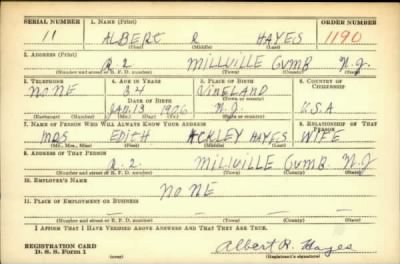 SERIAL NUMBER 1. NAME (Print) ORDER NUMBER
11 ALBERT R HAYES 1190
(First) (Middle) (Last)
2. ADDRESS (Print)
R-2 MILLVILLE CUMB N.J.
(Number and street or R. F. D. number) (Town) (County) (State)
3. TELEPHONE 4. AGE IN YEARS 5. PLACE OF BIRTH 6. COUNTRY OF CITIZENSHIP
NONE 34 VINELAND
DATE OF BIRTH (Town or county)
JAN. 13 1906 N.J. U.S.A
(Exchange) (Number) (Mo.) (Day) (Yr.) (State or country)
7. NAME OF PERSON WHO WILL ALWAYS KNOW YOUR ADDRESS 8. RELATIONSHIP OF THAT PERSON
MRS EDITH ACKLEY HAYES WIFE
(Mr., Mrs., Miss) (First) (Middle) (Last)
9. ADDRESS OF THAT PERSON
R-2. MILLVILLE CUMB. N.J
(Number and street or R. F. D. number) (Town) (County) (State)
10. EMPLOYER'S NAME
NONE
11. PLACE OF EMPLOYMENT OR BUSINESS
(Number and street or R. F. D. number) (Town) (County) (State)
I AFFIRM THAT I HAVE VERIFIED ABOVE ANSWERS AND THAT THEY ARE TRUE.
REGISTRATION CARD
D. S. S. Form 1 Albert R. Hayes
(Registrant's signature)